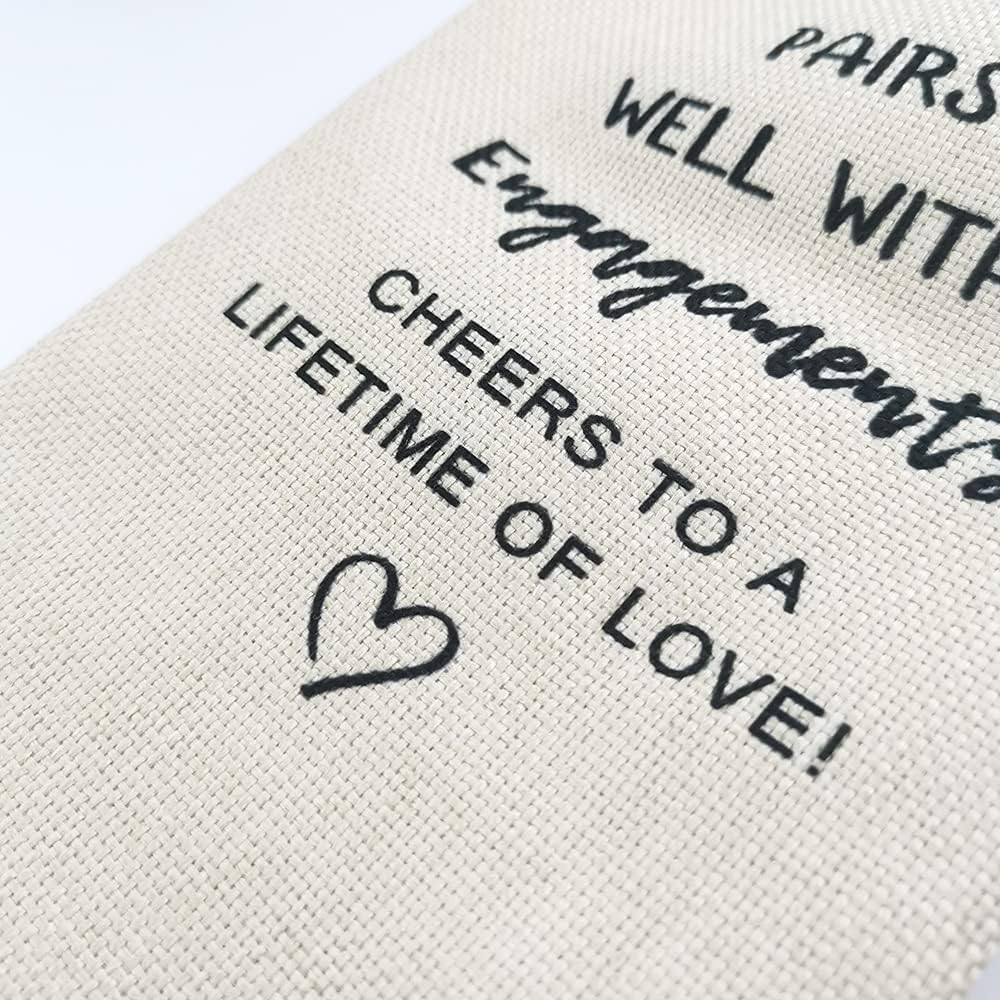 PAIRS
WELL WITH
Engagements
CHEERS TO A
LIFETIME OF LOVE!